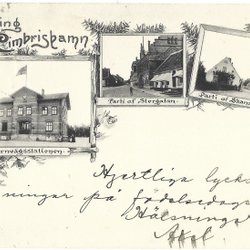 ing
Cimbrishamn
Parti af Storgatan.
Parti af Skans
ernvägsstationen
Hjertliga lyck
ningar på födelsedage
Hälsninger
Axel